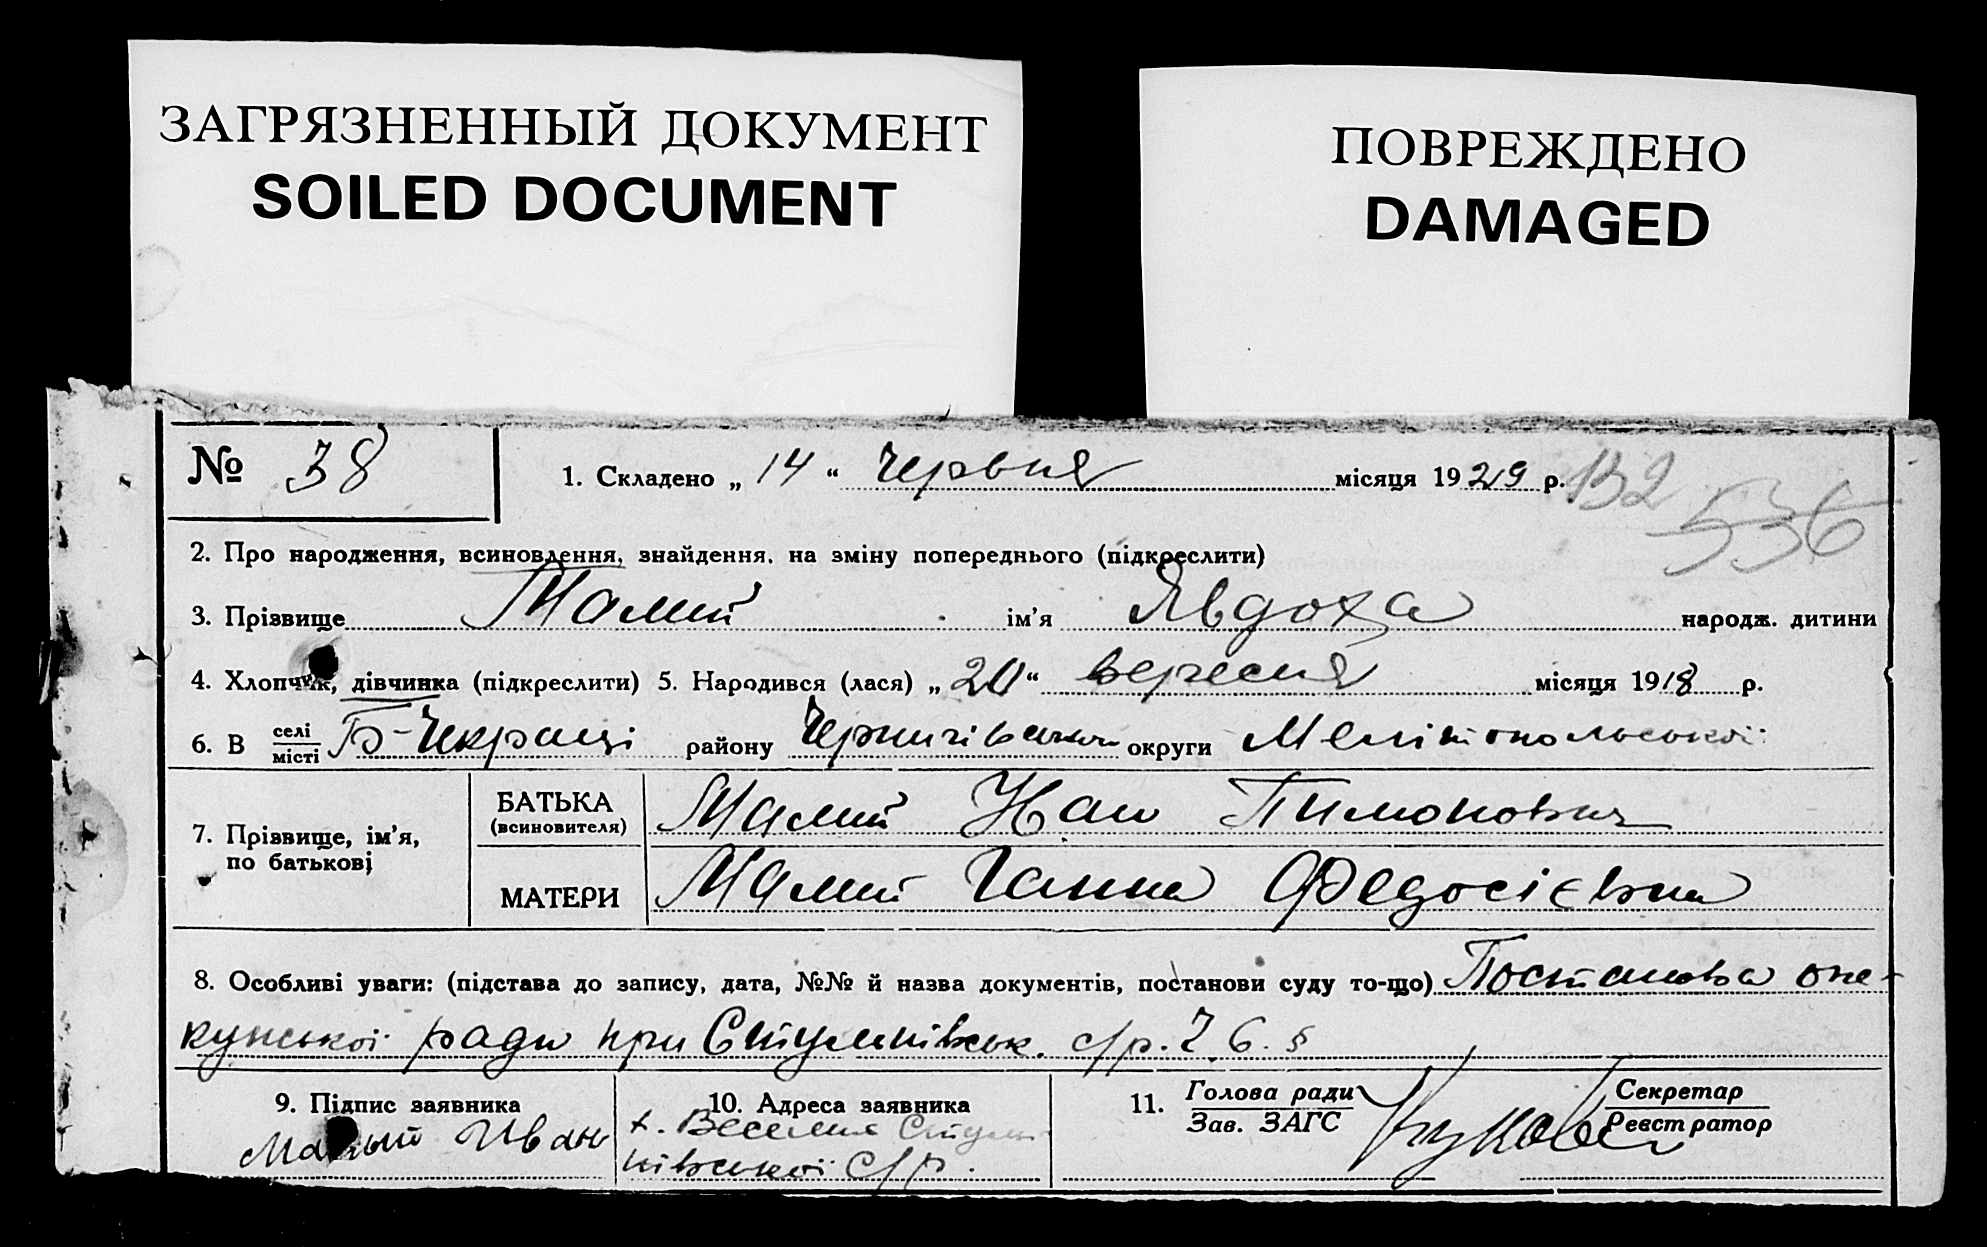 ЗАГРЯЗНЕННЫЙ ДОКУМЕНТ
SOILED DOCUMENT
ПОВРЕЖДЕНО
DAMAGED
№ 38
1. Складено „ 14 “ червня місяця 1929 р. 132
536
2. Про народження, всиновлення, знайдення, на зміну попереднього (підкреслити)
3. Прізвище Малий ім'я Явдоха народж. дитини
4. Хлопчик, дівчинка (підкреслити) 5. Народився (лася) „ 20 “ вересня місяця 1918 р.
6. В селі місті району Чернигівськог округи Мелітопольської
7. Прізвище, ім'я, по батькові
БАТЬКА (всиновителя) Малий Иван Тимонович
МАТЕРИ Малий Ганна Федосієвна
8. Особливі уваги: (підстава до запису, дата, №№ й назва документів, постанови суду то-що) Постанова опе-
кунської ради при с/р.
9. Підпис заявника
Малый Иван
10. Адреса заявника
х. Веселий
с/р.
11. Голова ради Зав. ЗАГС
Секретар Реєстратор